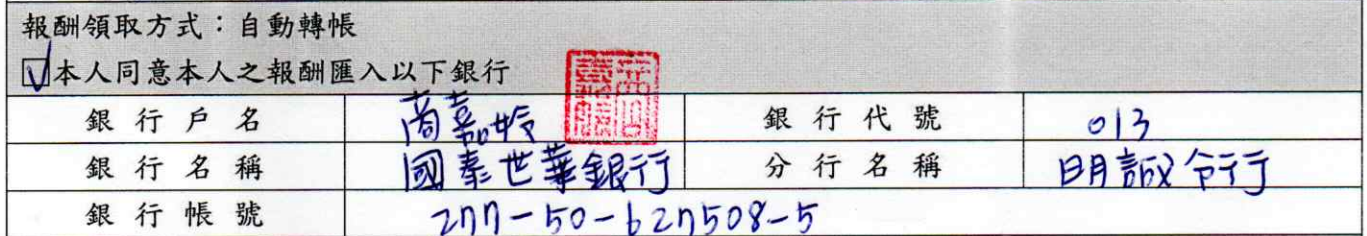 報酬領取方式：自動轉帳
☑本人同意本人之報酬匯入以下銀行
銀行戶名 商嘉玲 銀行代號 013
銀行名稱 國泰世華銀行 分行名稱 明誠分行
銀行帳號 277-50-627508-5